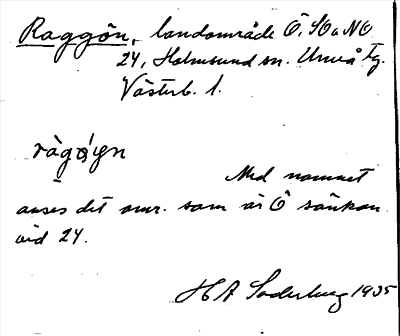 Raggön, landområde Ö, SO o NO
24, Holmsund sn. Umeå Tg.
Västerb. l.
rågöyn
Med namnet
anses det omr. som är Ö sänkan
vid 24.
H A Söderberg 1935